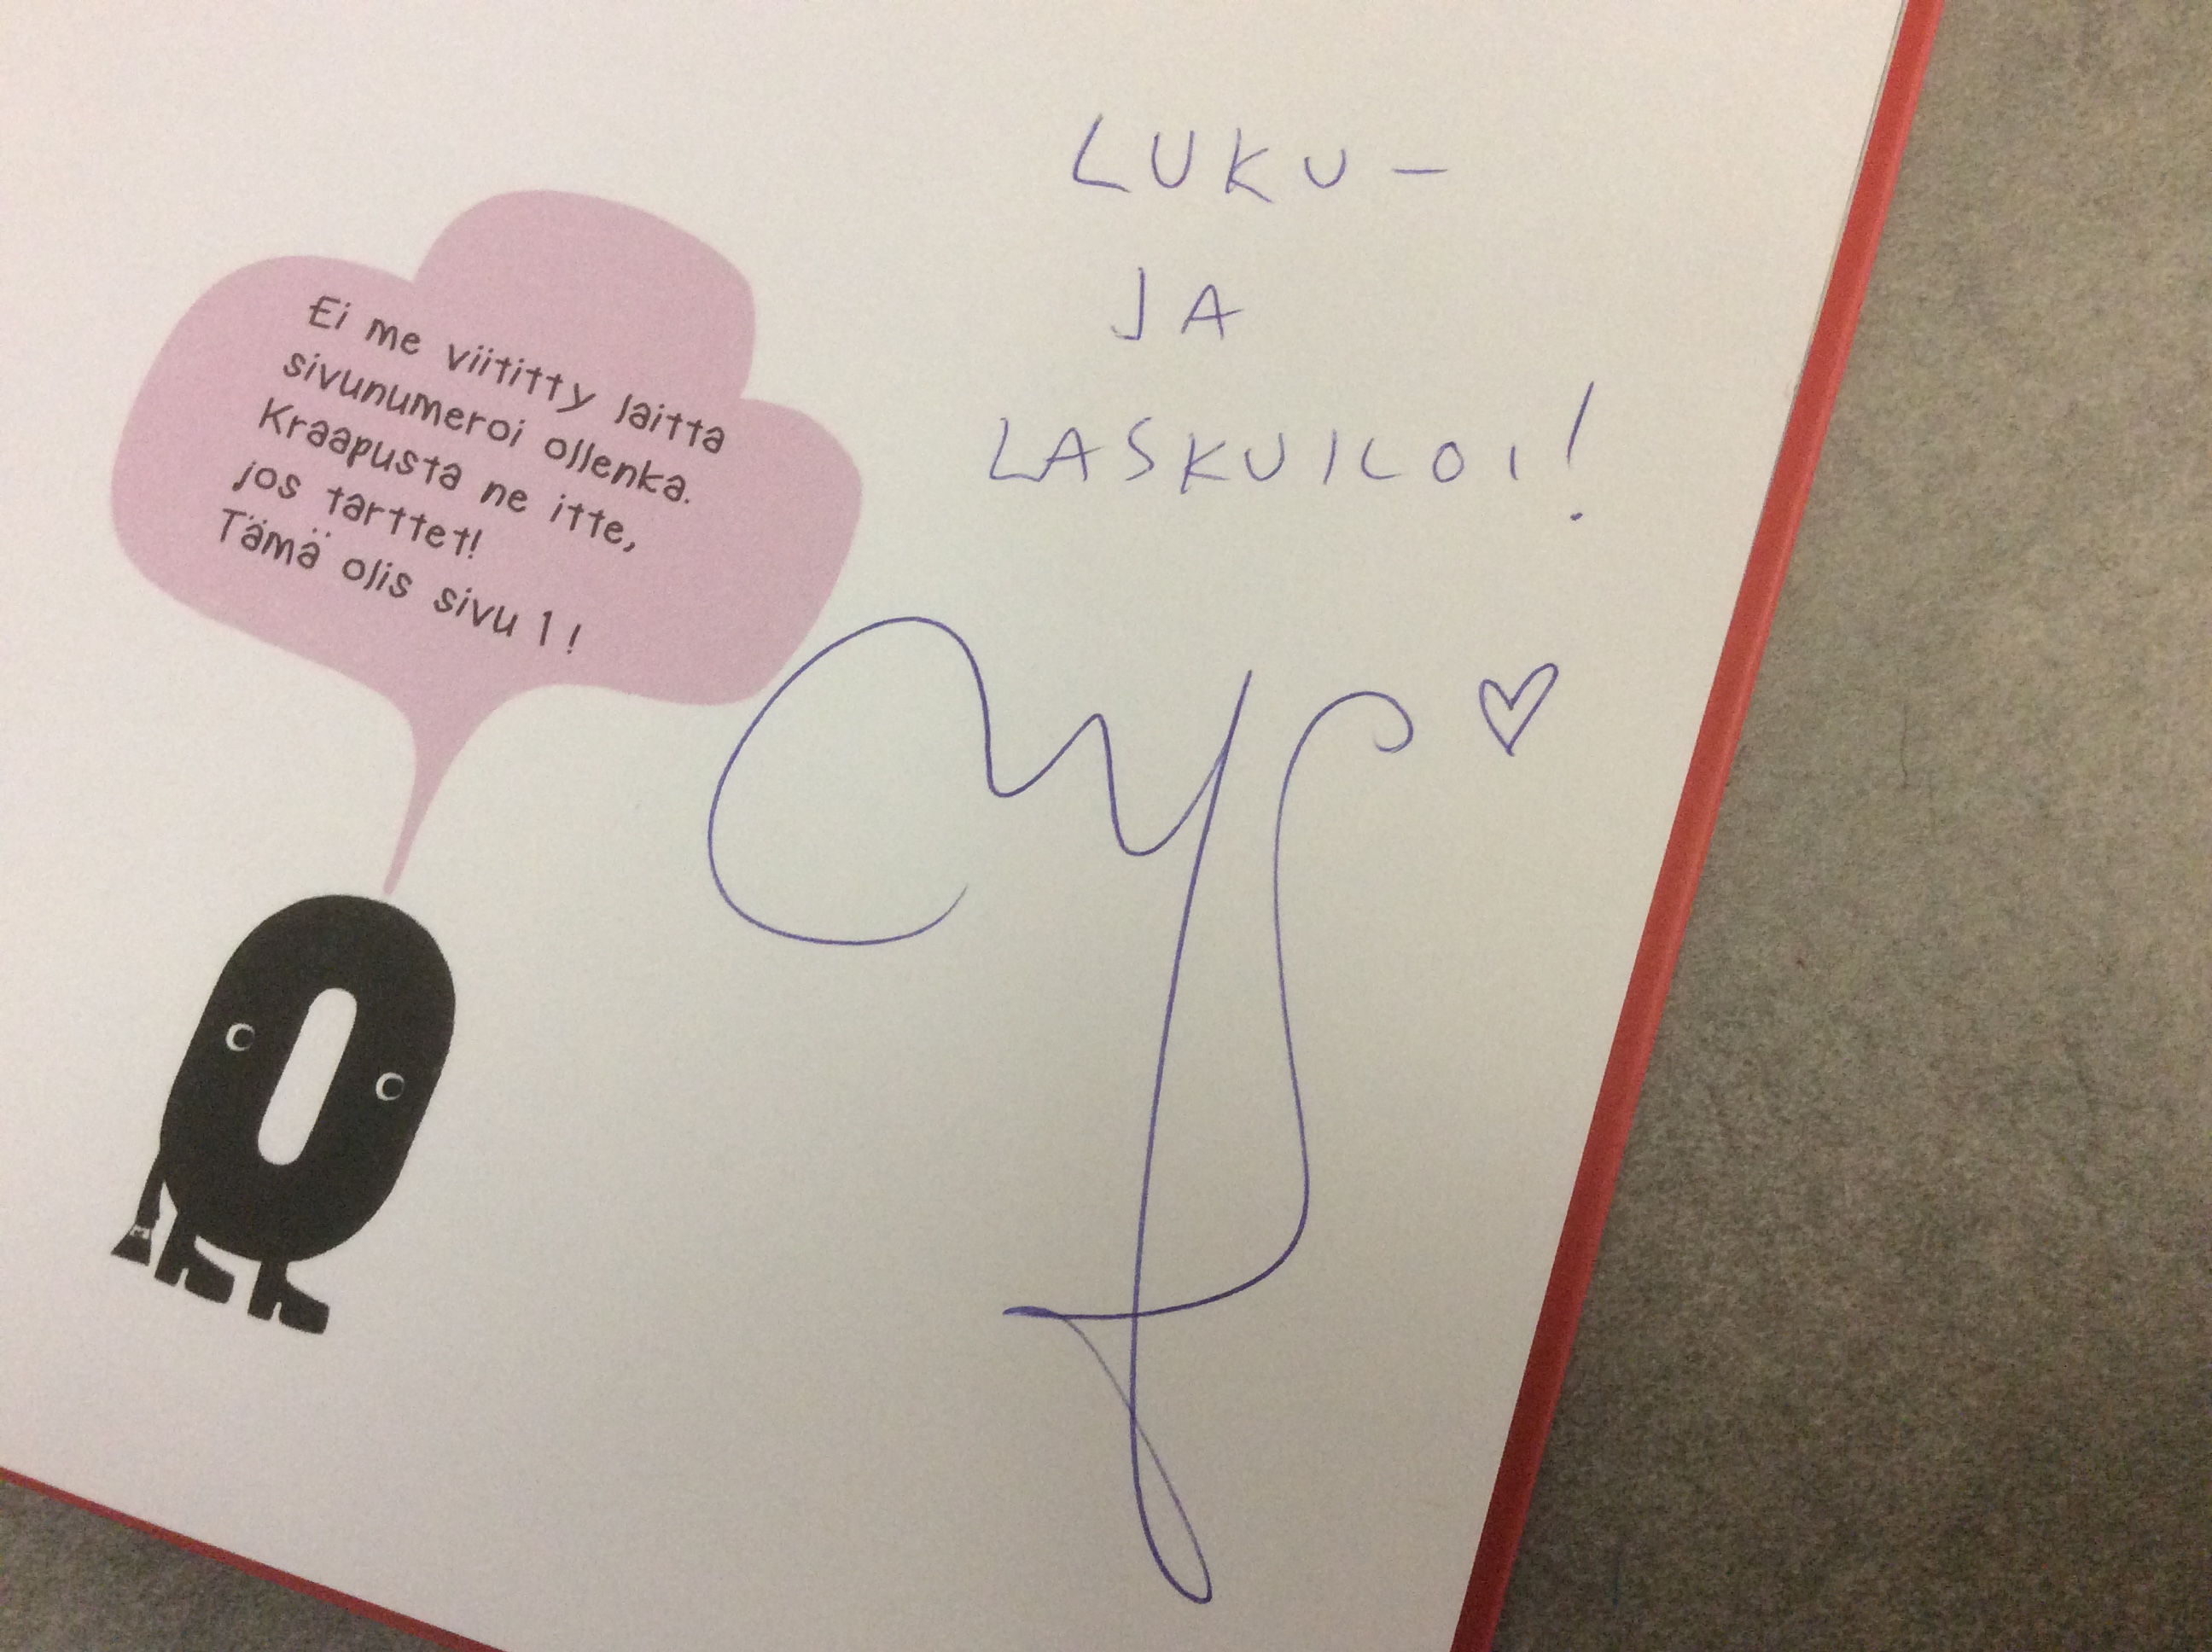 Ei me viititty laitta
sivunumeroi ollenka.
Kraapusta ne itte,
jos tarttet!
Tämä olis sivu 1!
LUKU-
JA
LASKUILOI!